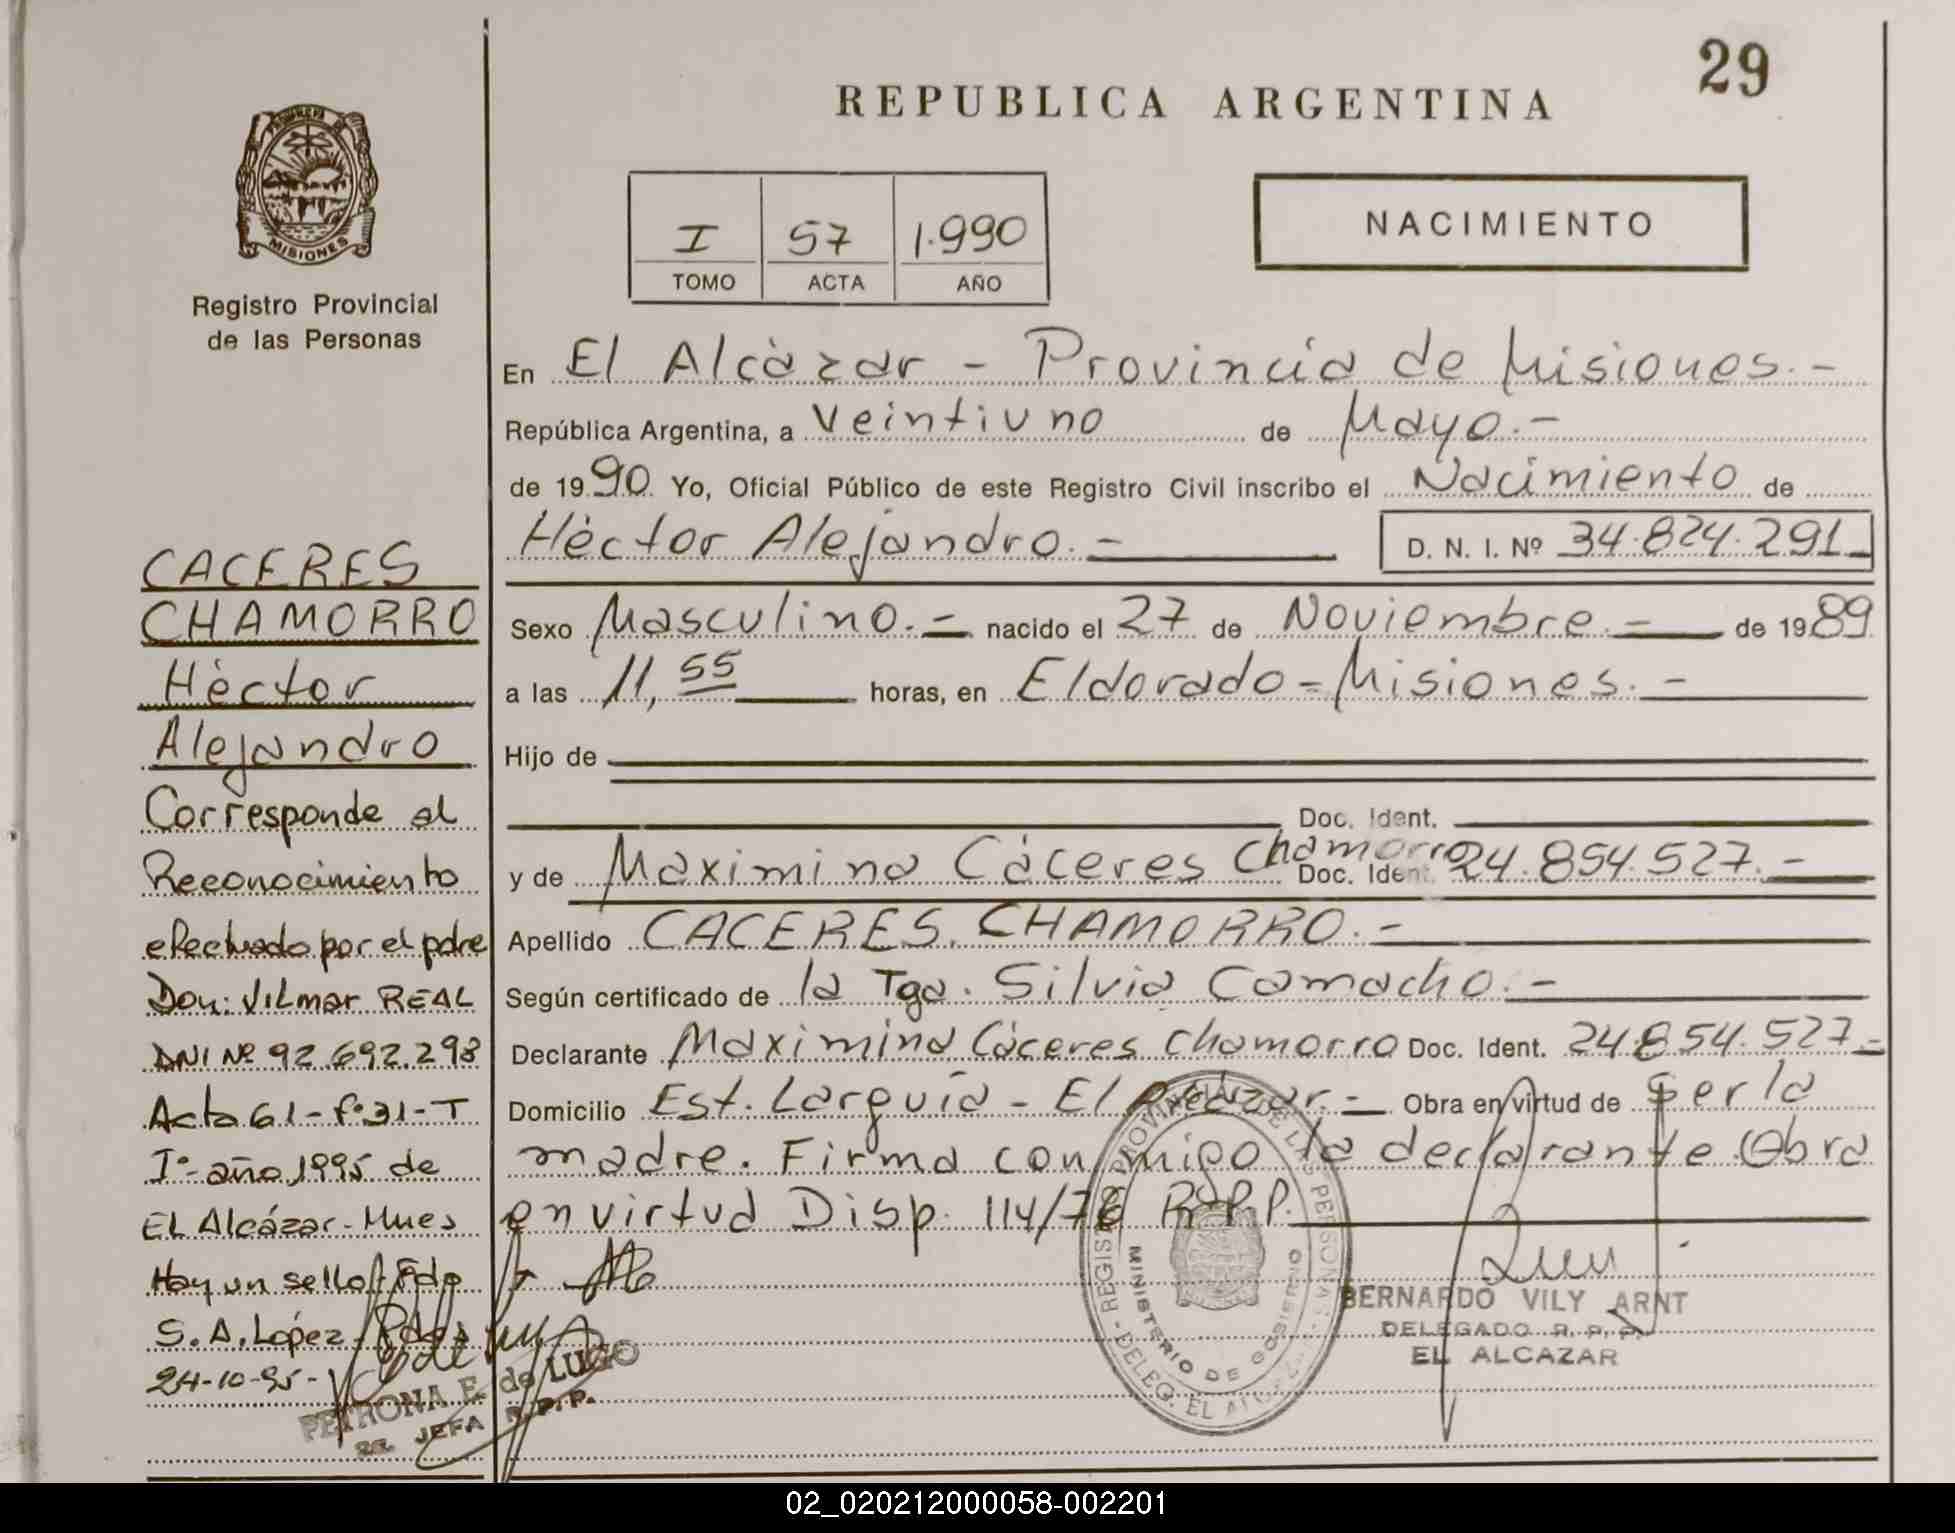 29
REPUBLICA ARGENTINA
NACIMIENTO
I 57 1.990
TOMO ACTA AÑO
MISIONES
Registro Provincial
de las Personas
En El Alcàzar - Provincia de Misiones.-
República Argentina, a Veintiuno de Mayo.-
de 1990. Yo, Oficial Público de este Registro Civil inscribo el Nacimiento de
Hèctor Alejandro.- D. N. I. Nº 34.824.291
Sexo Masculino.- nacido el 27 de Noviembre.- de 1989
a las 11,55 horas, en Eldorado - Misiones.-
Hijo de
Doc. Ident.
y de Maximina Càceres Chamorro Doc. Ident. 24.854.527.-
Apellido CACERES CHAMORRO.-
Según certificado de la Tga. Silvia Camacho.-
Declarante Maximina Càceres Chamorro Doc. Ident. 24.854.527.-
Domicilio Est. Larguía - El Alcàzar.- Obra en virtud de Ser la
madre. Firma con migo la declarante. Obra
en virtud Disp. 114/76 R.P.P.
CACERES
CHAMORRO
Hèctor
Alejandro
Corresponde al
Reconocimiento
efectuado por el padre
Don: Vilmar REAL
DNI Nº 92.692.298
Acta 61 - Fº 31 - T
Iº - año 1995 de
EL Alcázar - Mnes
Hay un sello. Fdo
S. A. López - Pdas
24-10-95-
PETRONA E. de LUGO
JEFA R.P.P.
REGISTRO PROVINCIAL DE LAS PERSONAS
MINISTERIO DE GOBIERNO
DELEG. EL ALCAZAR
BERNARDO VILY ARNT
DELEGADO R. P. P.
EL ALCAZAR
02_020212000058-002201